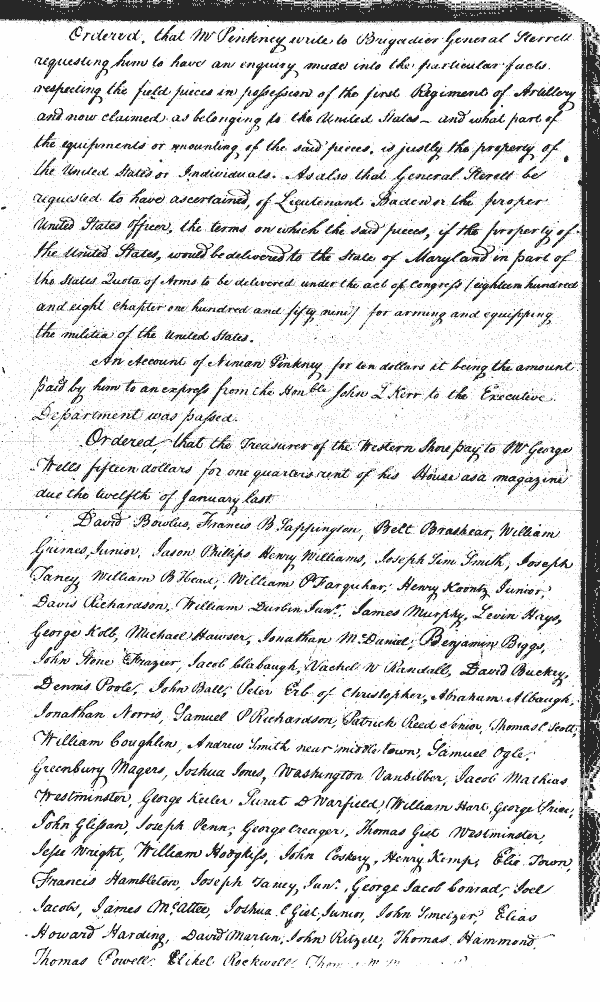 Ordered, that Mr Pinkney write to Brigadier General Sterrett
requesting him to have an enquiry made into the particular facts
respecting the field pieces in possession of the first Regiment of Artillery
and now claimed as belonging to the United States – and what part of
the equipments or mounting of the said pieces, is justly the property of
the United States or Individuals. As also that General Sterett be
requested to have ascertained, of Lieutenant Baden or the proper
United States Officer, the terms on which the said pieces, if the property of
the United States, would be delivered to the State of Maryland in part of
the States Quota of Arms to be delivered under the act of Congress (eighteen hundred
and eight chapter one hundred and fifty nine) for arming and equipping
the militia of the United States.
An Account of Ninian Pinkney for ten dollars it being the amount
paid by him to an express from the Honble John L Kerr to the Executive
Department was passed.
Ordered, that the Treasurer of the Western Shore pay to Mr George
Wells fifteen dollars for one quarters rent of his House as a magazine
due the twelfth of January last
David Bowlus, Francis B Sappington, Belt Brashear, William
Grimes, Junior, Jason Phillips Henry Williams, Joseph Sim Smith, Joseph
Taney William B Head, William P Farquhar, Henry Koontz Junior,
Davis Richardson, William Durbin Junr. James Murphy, Levin Hays,
George Kolb, Michael Hawser, Jonathan McDaniel, Benjamin Biggs,
John Stone Frazier, Jacob Clabaugh, Vachel W Randall, David Buckey,
Dennis Poole, John Ball, Peter Erb of Christopher, Abraham Albaugh,
Jonathan Norris, Samuel P Richardson, Patrick Reed Senior, Thomas C Scott,
William Coughlin, Andrew Smith near middletown, Samuel Ogle,
Greenbury Magers, Joshua Jones, Washington Vanbibber, Jacob Mathias
Westminster, George Keeler Surat D Warfield, William Hart, George Price,
John Glissan, Joseph Penn, George Creager, Thomas Gist Westminster,
Jesse Wright, William Hodgkiss, John Coskery, Henry Kemp, Elie Town,
Francis Hambleton, Joseph Taney, Junr. George Jacob Conrad, Joel
Jacobs, James McAtee, Joshua C Gist, Junior, John Smelzer, Elias
Howard Harding, David Martin, John Ritzell, Thomas Hammond,
Thomas Powell, Rockwell,